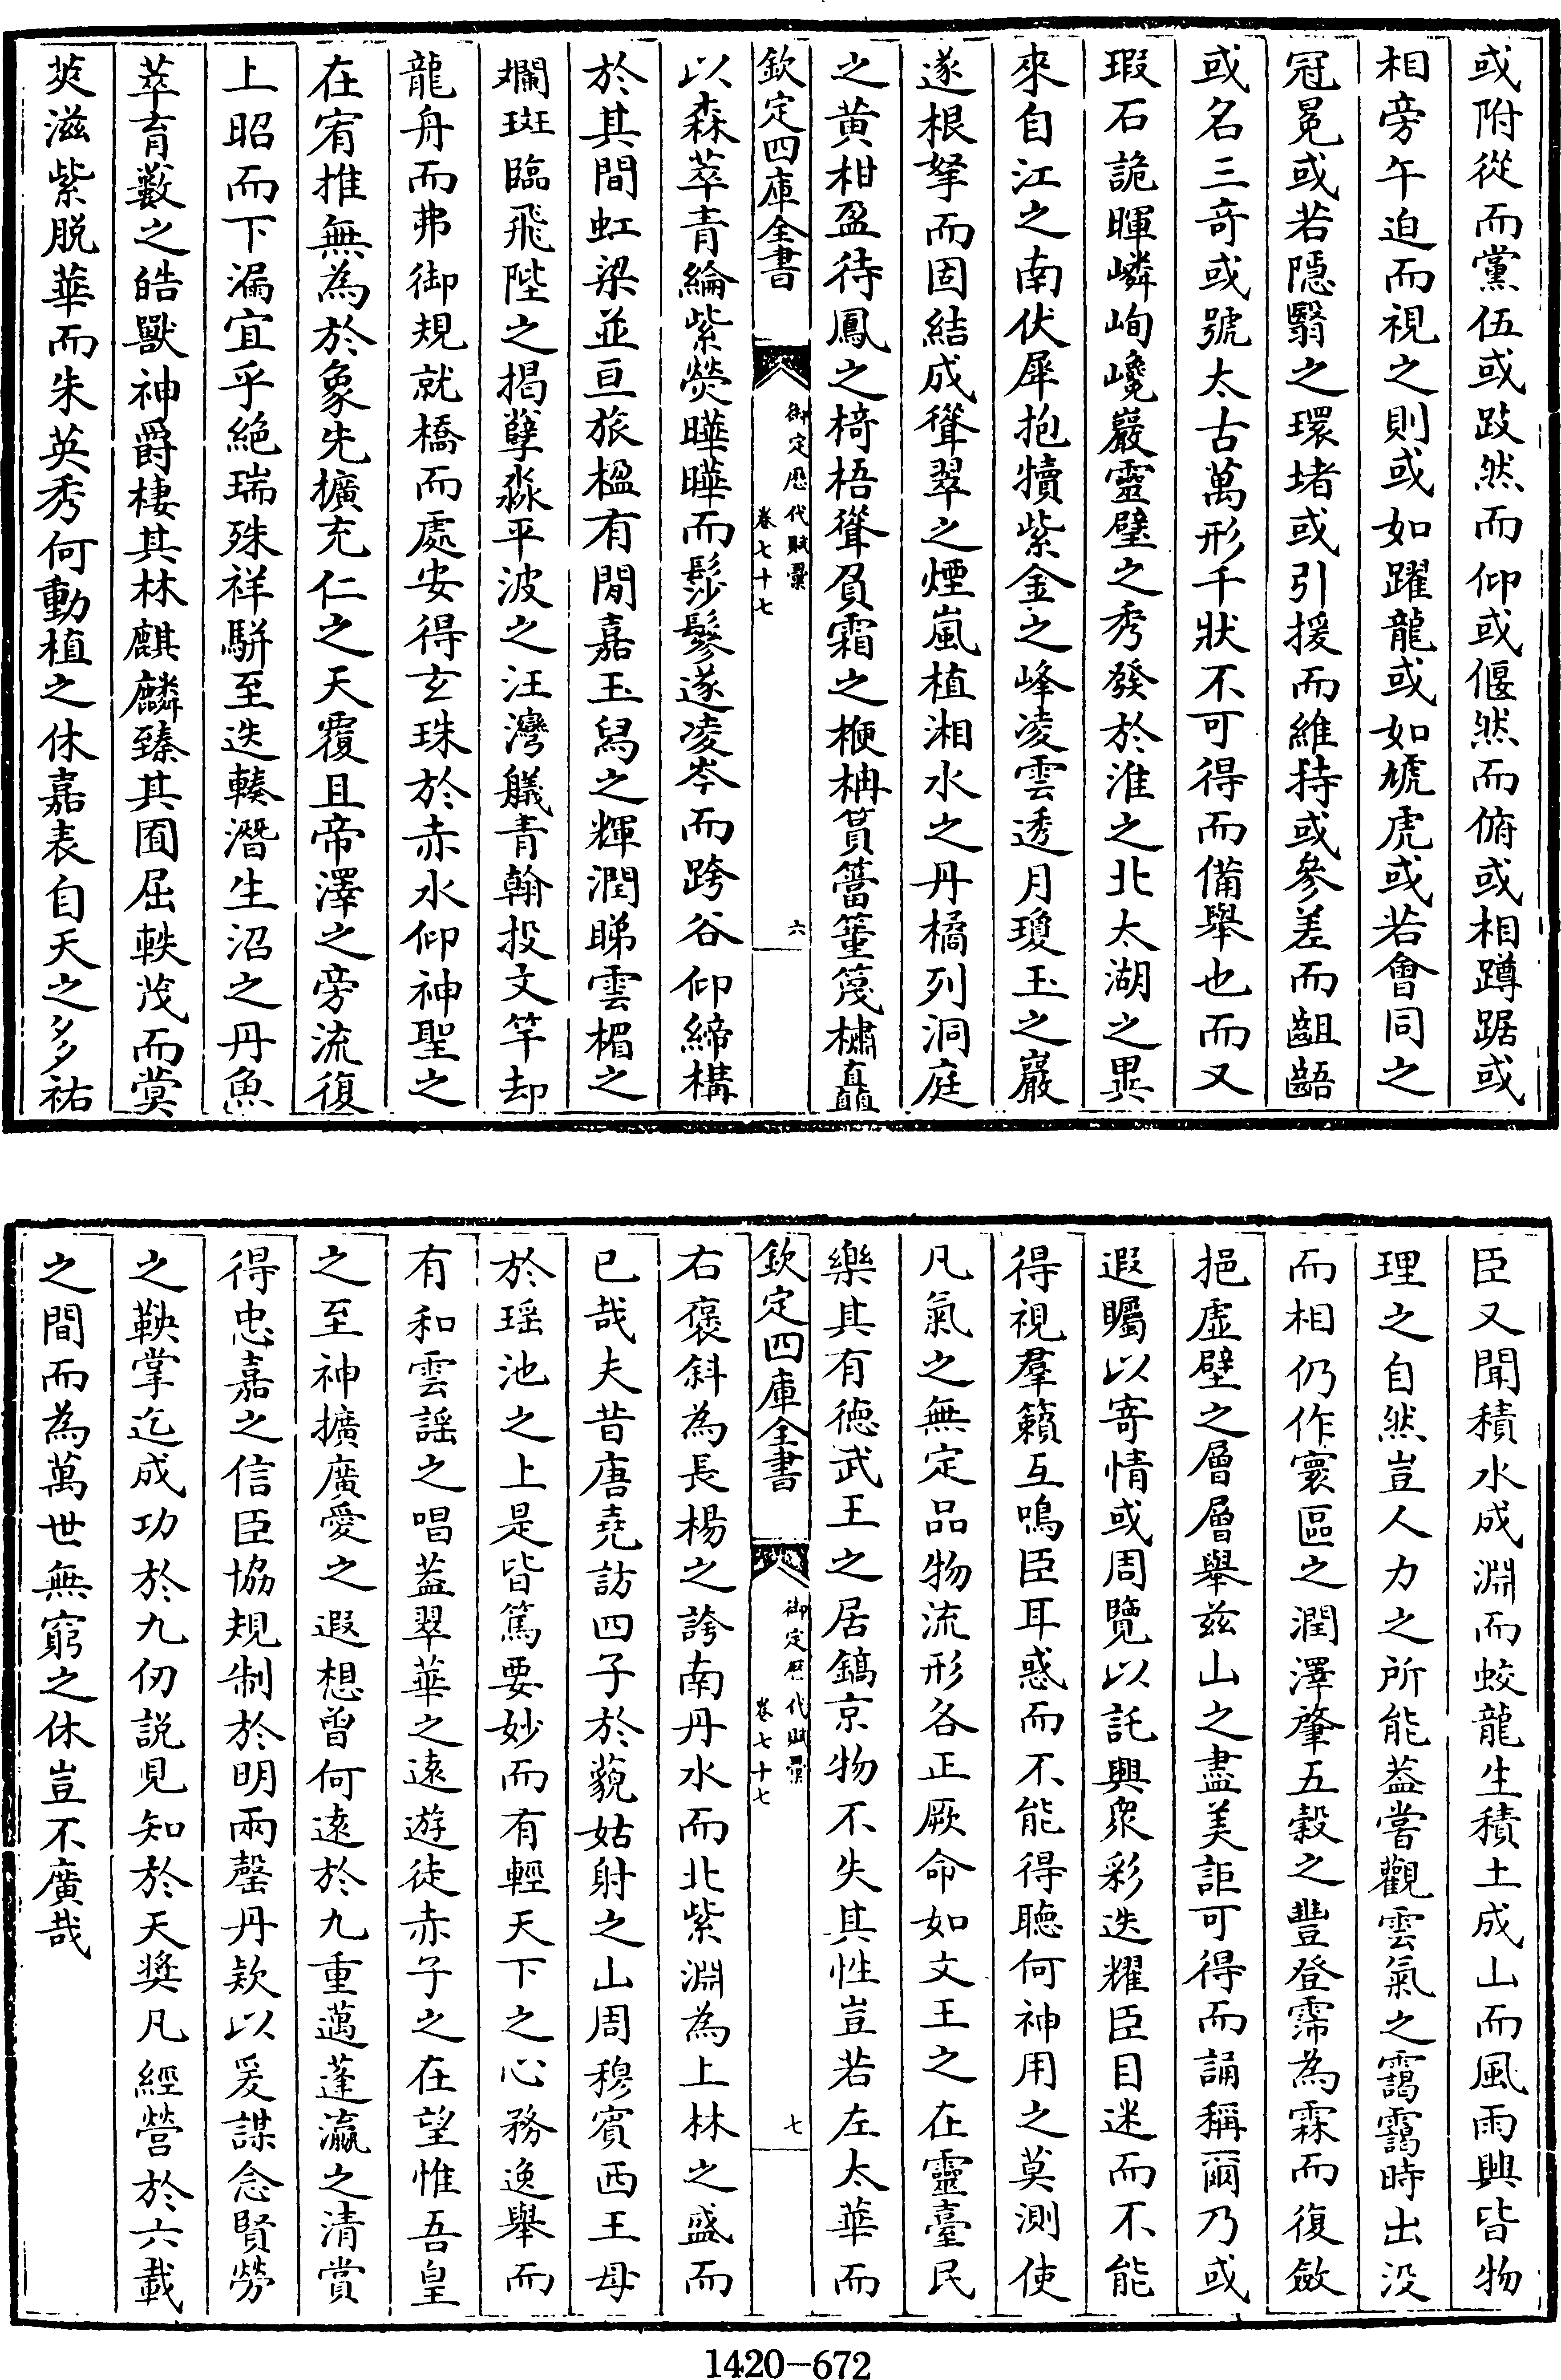 或附從而黨伍或跂然而仰或偃然而俯或相蹲踞或
相旁午迫而視之則或如躍龍或如虓虎或若會同之
冠冕或若隱翳之環堵或引援而維持或參差而齟齬
或名三奇或號太古萬形千狀不可得而備舉也而又
瑕石詭暉嶙峋巉巖靈璧之秀發於淮之北太湖之異
來自江之南伏犀抱犢紫金之峰凌雲透月瓊玉之巖
遂根拏而固結成聳翠之煙嵐植湘水之丹橘列洞庭
之黃柑盈待鳳之椅梧聳負霜之楩柟貫簹篁篾橚矗
欽定四庫全書
御定歷代賦彙
卷七十七
六
以森萃青綸紫熒曄曄而鬖鬖遂凌岑而跨谷仰締構
於其間虹梁並亘旅楹有閒嘉玉舄之輝潤睇雲楣之
斕斑臨飛陛之揭孼淼平波之汪灣艤青翰投文竿却
龍舟而弗御規就橋而處安得玄珠於赤水仰神聖之
在宥推無為於象先擴充仁之天覆且帝澤之旁流復
上昭而下漏宜乎絕瑞殊祥駢至迭輳潛生沼之丹魚
萃育藪之皓獸神爵棲其林麒麟臻其囿屈軼茂而蓂
莢滋紫脫華而朱英秀何動植之休嘉表自天之多祐
臣又聞積水成淵而蛟龍生積土成山而風雨興皆物
理之自然豈人力之所能葢嘗觀雲氣之靄靄時出沒
而相仍作寰區之潤澤肇五穀之豐登霈為霖而復斂
挹虛壁之層層舉兹山之盡美詎可得而誦稱爾乃或
遐矚以寄情或周覽以託興衆彩迭耀臣目迷而不能
得視羣籟互鳴臣耳惑而不能得聽何神用之莫測使
凡氣之無定品物流形各正厥命如文王之在靈臺民
樂其有德武王之居鎬京物不失其性豈若左太華而
欽定四庫全書
御定歷代賦彙
卷七十七
七
右褒斜為長楊之誇南丹水而北紫淵為上林之盛而
已哉夫昔唐堯訪四子於藐姑射之山周穆賓西王母
於瑶池之上是皆篤要妙而有輕天下之心務逸舉而
有和雲謡之唱葢翠華之遠遊徒赤子之在望惟吾皇
之至神擴廣愛之遐想曾何遠於九重邁蓬瀛之清賞
得忠嘉之信臣協規制於明兩罄丹欵以爰謀念賢勞
之鞅掌迄成功於九仞説見知於天奬凡經營於六載
之間而為萬世無窮之休豈不廣哉
1420-672